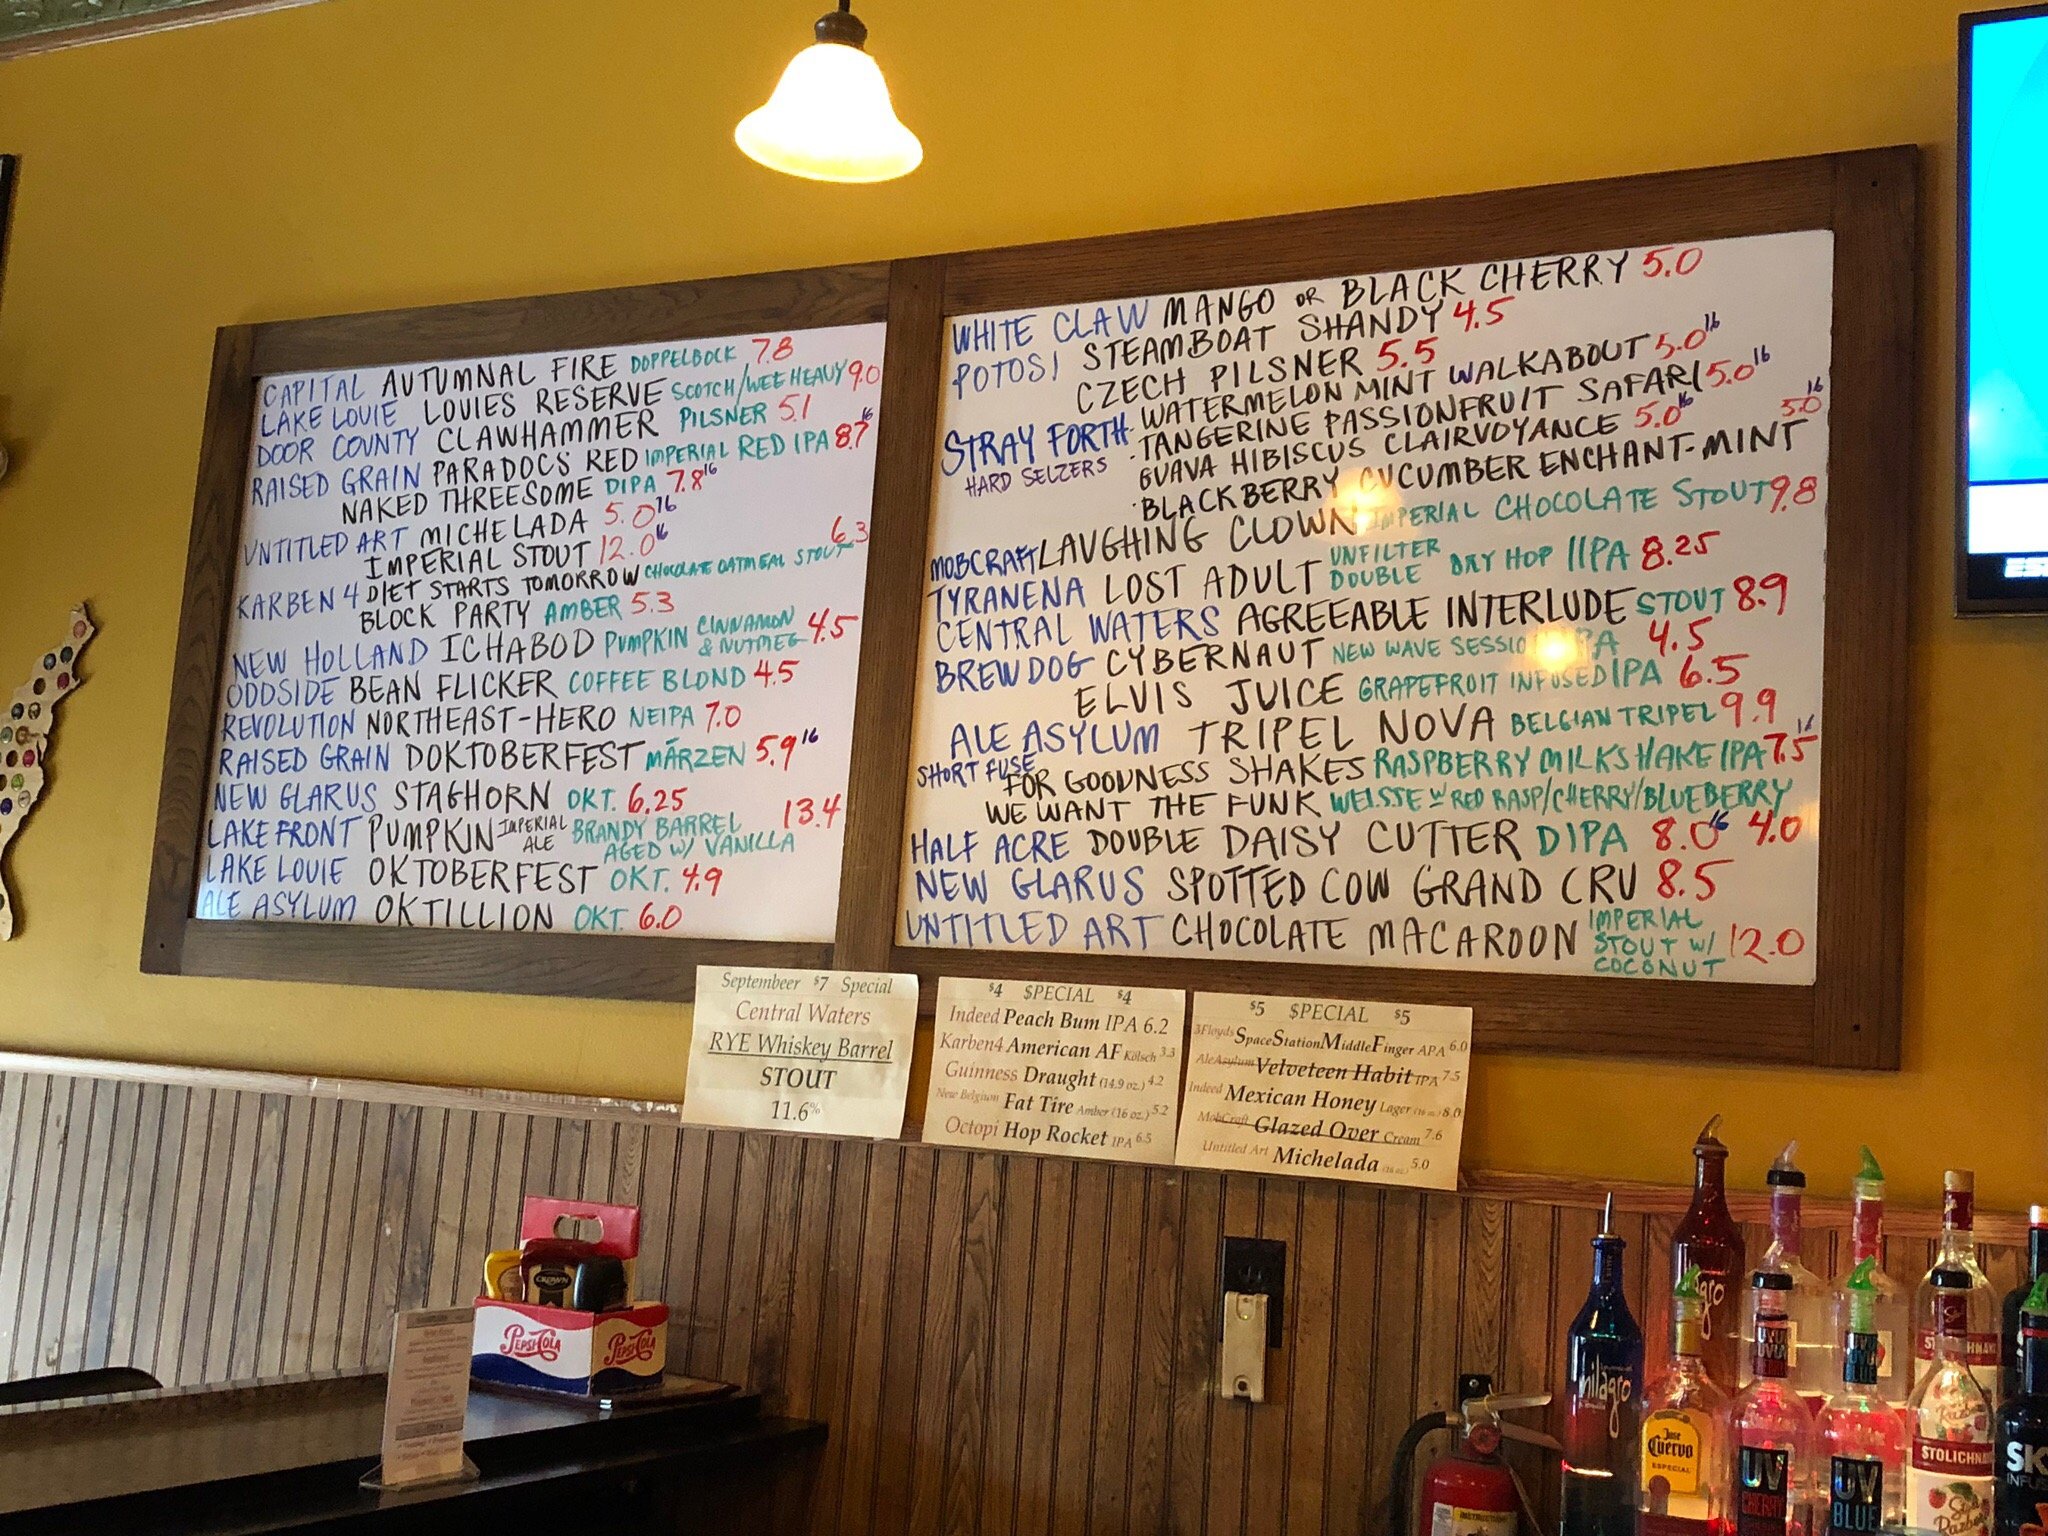 CAPITAL AUTUMNAL FIRE DOPPELBOCK 7.8
LAKE LOUIE LOUIES RESERVE SCOTCH/WEE HEAVY 9.0
DOOR COUNTY CLAWHAMMER PILSNER 5.1
RAISED GRAIN PARADOCS RED IMPERIAL RED IPA 8.7 16
NAKED THREESOME DIPA 7.8 16
UNTITLED ART MICHELADA 5.0 16
IMPERIAL STOUT 12.0 16
KARBEN 4 DIET STARTS TOMORROW CHOCOLATE OATMEAL STOUT 6.3
BLOCK PARTY AMBER 5.3
NEW HOLLAND ICHABOD PUMPKIN CINNAMON & NUTMEG 4.5
ODDSIDE BEAN FLICKER COFFEE BLOND 4.5
REVOLUTION NORTHEAST-HERO NEIPA 7.0
RAISED GRAIN DOKTOBERFEST MÄRZEN 5.9 16
NEW GLARUS STAGHORN OKT. 6.25
LAKEFRONT PUMPKIN IMPERIAL ALE BRANDY BARREL AGED W/ VANILLA 13.4
LAKE LOUIE OKTOBERFEST OKT. 4.9
ALE ASYLUM OKTILLION OKT. 6.0
WHITE CLAW MANGO OR BLACK CHERRY 5.0
POTOSI STEAMBOAT SHANDY 4.5
CZECH PILSNER 5.5
STRAY FORTH HARD SELZERS · WATERMELON MINT WALKABOUT 5.0 16
· TANGERINE PASSIONFRUIT SAFARI 5.0 16
GUAVA HIBISCUS CLAIRVOYANCE 5.0 16
· BLACKBERRY CUCUMBER ENCHANT-MINT 5.0 16
MOBCRAFT LAUGHING CLOWN IMPERIAL CHOCOLATE STOUT 9.8
TYRANENA LOST ADULT UNFILTER DOUBLE DRY HOP IIPA 8.25
CENTRAL WATERS AGREEABLE INTERLUDE STOUT 8.9
BREWDOG CYBERNAUT NEW WAVE SESSION IPA 4.5
ELVIS JUICE GRAPEFRUIT INFUSED IPA 6.5
ALE ASYLUM TRIPEL NOVA BELGIAN TRIPEL 9.9
SHORT FUSE FOR GOODNESS SHAKES RASPBERRY MILKSHAKE IPA 7.5 16
WE WANT THE FUNK WEISSE W RED RASP/CHERRY/BLUEBERRY 4.0
HALF ACRE DOUBLE DAISY CUTTER DIPA 8.0 16
NEW GLARUS SPOTTED COW GRAND CRU 8.5
UNTITLED ART CHOCOLATE MACAROON IMPERIAL STOUT W/ COCONUT 12.0
Septembeer $7 Special
Central Waters
RYE Whiskey Barrel
STOUT
11.6%
$4 $PECIAL $4
Indeed Peach Bum IPA 6.2
Karben4 American AF Kölsch 3.3
Guinness Draught (14.9 oz.) 4.2
New Belgium Fat Tire Amber (16 oz.) 5.2
Octopi Hop Rocket IPA 6.5
$5 $PECIAL $5
3Floyds SpaceStationMiddleFinger APA 6.0
AleAsylum Velveteen Habit IPA 7.5
Indeed Mexican Honey Lager (16 oz.) 8.0
MobCraft Glazed Over Cream 7.6
Untitled Art Michelada (16 oz.) 5.0
CROWN
PEPSI-COLA
PEPSI-COLA
milagro
Jose Cuervo
ESPECIAL
UV
CHERRY
UV
BLUE
STOLICHNA
SK
INFUS